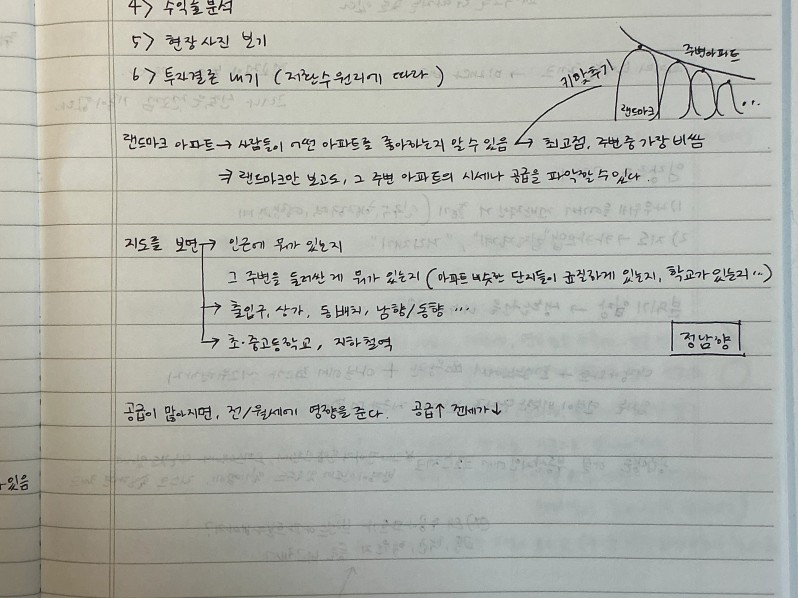 4> 수익률분석
5> 현장사진 보기
6> 투자결론 내기 (저환수원리에 따라)
키맞추기
주변아파트
랜드마크
...
랜드마크 아파트 → 사람들이 어떤 아파트를 좋아하는지 알 수 있음 → 최고점, 주변 중 가장 비쌈
⇒ 랜드마크만 보고도, 그 주변 아파트의 시세나 공급을 파악할 수 있다.
지도를 보면 → 인근에 뭐가 있는지
그 주변을 둘러싼 게 뭐가 있는지 (아파트 비슷한 단지들이 균질하게 있는지, 학교가 있는지...)
→ 출입구, 상가, 동배치, 남향/동향 ...
→ 초·중고등학교, 지하철역
정남향
공급이 많아지면, 전/월세에 영향을 준다. 공급↑ 전세가↓
있음